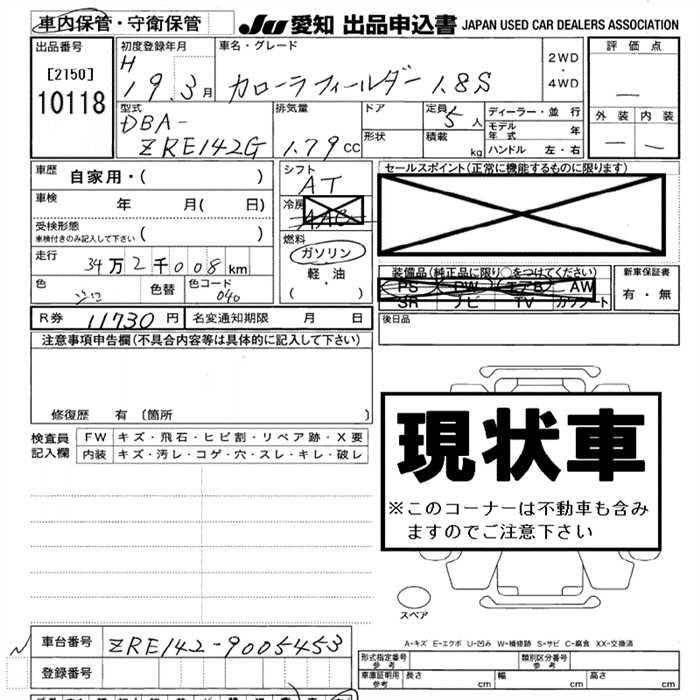 車内保管・守衛保管 JU 愛知 出品申込書 JAPAN USED CAR DEALERS ASSOCIATION
出品番号 初度登録年月 車名・グレード 2WD・4WD 評価点
[2150] H 19.3月 カローラフィールダー 1.8S
10118
型式 排気量 ドア 定員 5人 ディーラー・並行 外装 内装
DBA-
ZRE142G 1.79CC 形状 積載 kg モデル年式 年
ハンドル 左・右
車歴 自家用・( ) シフト AT セールスポイント(正常に機能するものに限ります)
車検 年 月( 日) 冷房 AAC
受検形態 ( )
車検付きのみ記入して下さい
燃料
ガソリン
走行 34万2千008km 軽・油
装備品(純正品に限り○をつけてください) 新車保証書
色 色替 色コード 040 (・)
PS PW エアB AW 有・無
SR ナビ TV カワシート
R券 11730円 名変通知期限 月 日 後日品
注意事項申告欄(不具合内容等は具体的に記入して下さい)
修復歴 有 〔箇所 〕
検査員記入欄 FW キズ・飛石・ヒビ割・リペア跡・X要
内装 キズ・汚レ・コゲ・穴・スレ・キレ・破レ
現状車
※このコーナーは不動車も含み
ますのでご注意下さい
スペア
A-キズ E-エクボ U-凹み W-補修跡 S-サビ C-腐食 XX-交換済
車台番号 ZRE142-9005453
形式指定番号 参考 類別区分番号 参考
登録番号
車庫証明用 参考 長さ cm 幅 cm 高さ cm